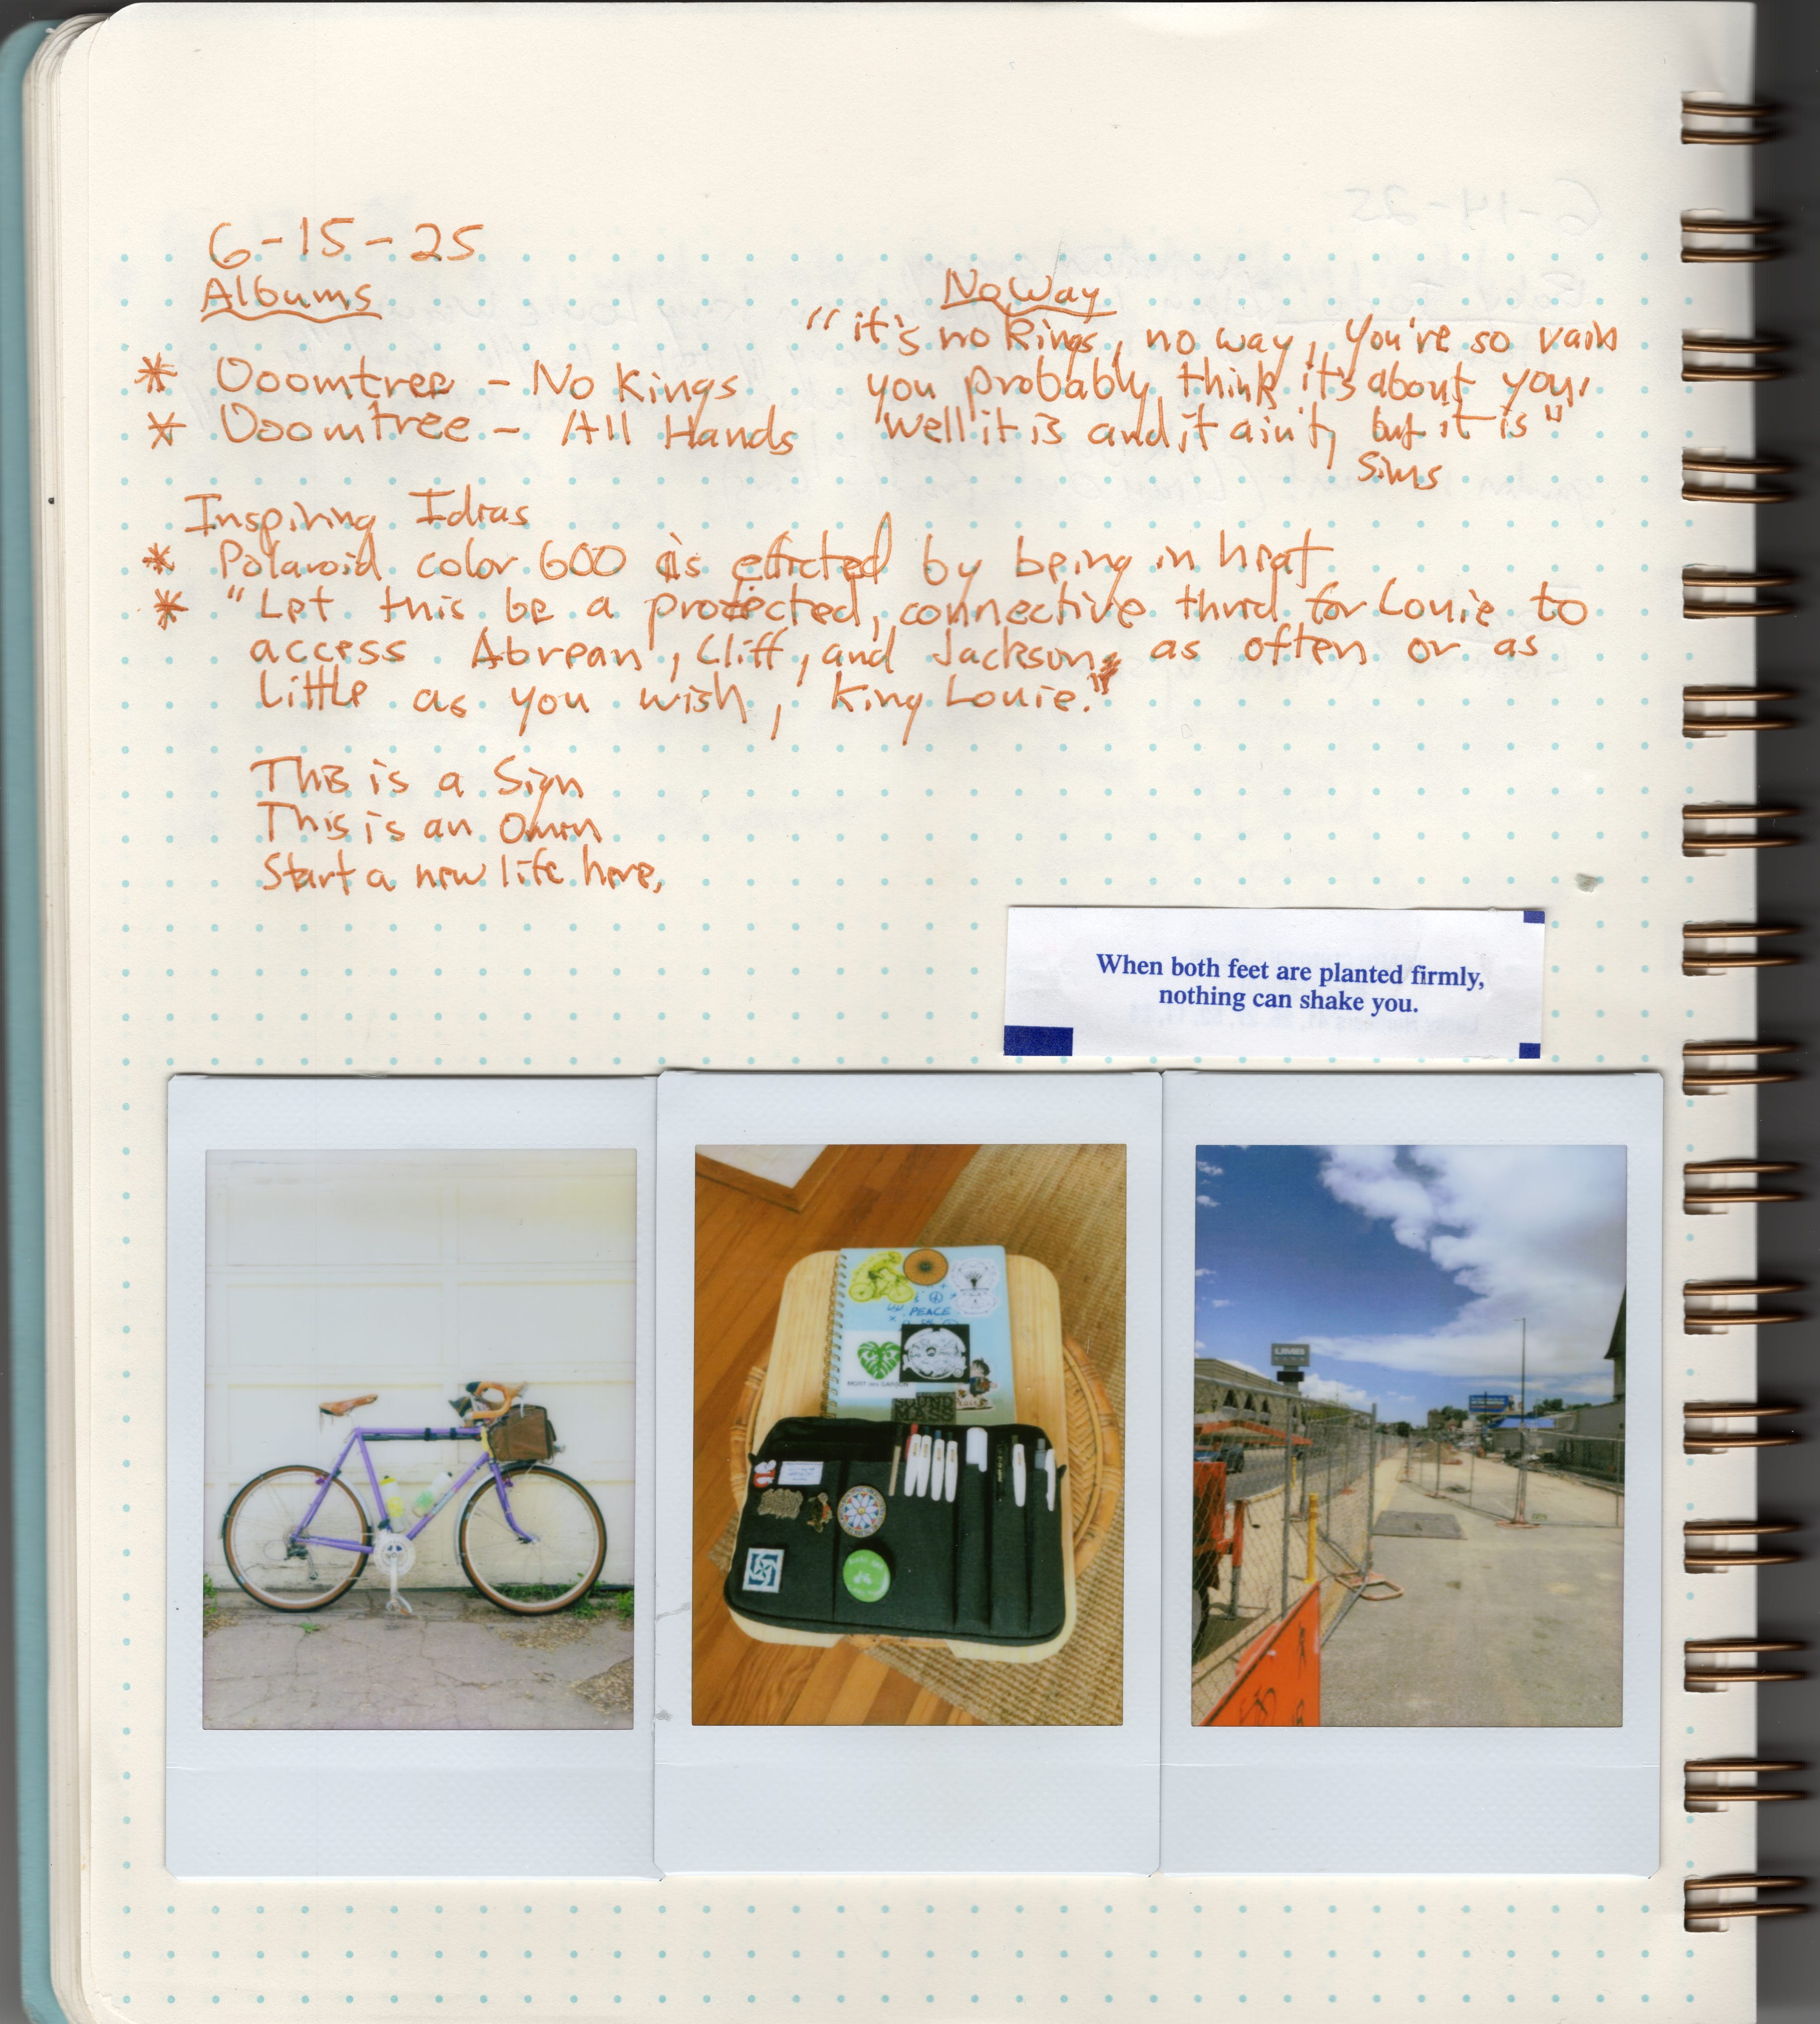 6-15-25
Albums
* Doomtree - No Kings
* Doomtree - All Hands
No Way
"it's no Kings, no way, you're so vain
you probably think it's about you,
Well it is and it ain't, but it is"
Sims
Inspiring Ideas
* Polaroid color 600 is efected by being in heat
* "Let this be a protected, connective thred for Louie to
access Abrean, Cliff, and Jackson, as often or as
little as you wish, King Louie."
This is a Sign
This is an Omen
Start a new life here,
When both feet are planted firmly,
nothing can shake you.
PEACE
UMB
6-14-25